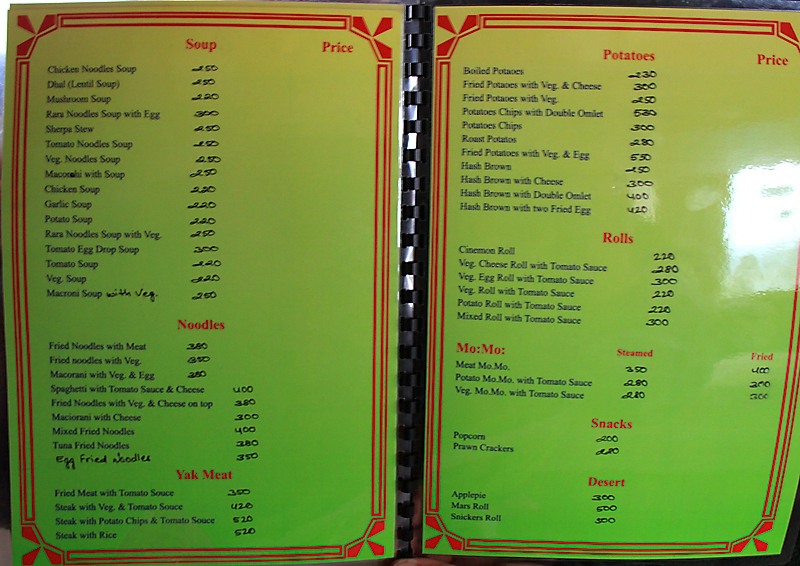 Soup Price
Chicken Noodles Soup 250
Dhal (Lentil Soup) 250
Mushroom Soup 220
Rara Noodles Soup with Egg 300
Sherpa Stew 250
Tomato Noodles Soup 250
Veg. Noodles Soup 250
Macoroni with Soup 250
Chicken Soup 220
Garlic Soup 220
Potato Soup 220
Rara Noodles Soup with Veg. 250
Tomato Egg Drop Soup 300
Tomato Soup 220
Veg. Soup 220
Macroni Soup with Veg. 250
Noodles
Fried Noodles with Meat 380
Fried noodles with Veg. 350
Macorani with Veg. & Egg 380
Spaghetti with Tomato Sauce & Cheese 400
Fried Noodles with Veg. & Cheese on top 380
Maciorani with Cheese 300
Mixed Fried Noodles 400
Tuna Fried Noodles 380
Egg Fried Noodles 350
Yak Meat
Fried Meat with Tomato Souce 350
Steak with Veg. & Tomato Souce 420
Steak with Potato Chips & Tomato Souce 520
Steak with Rice 520
Potatoes Price
Boiled Potaoes 230
Fried Potaoes with Veg. & Cheese 300
Fried Potaoes with Veg. 250
Potatoes Chips with Double Omlet
Potatoes Chips 300
Roast Potatos 280
Fried Potatoes with Veg & Egg
Hash Brown 250
Hash Brown with Cheese 300
Hash Brown with Double Omlet 400
Hash Brown with two Fried Egg 420
Rolls
Cinemon Roll 220
Veg. Cheese Roll with Tomato Sauce 280
Veg. Egg Roll with Tomato Sauce 300
Veg. Roll with Tomato Sauce 220
Potato Roll with Tomato Sauce 220
Mixed Roll with Tomato Sauce 300
Mo:Mo: Steamed Fried
Meat Mo.Mo. 350 400
Potato Mo.Mo. with Tomato Sauce 280 300
Veg. Mo.Mo. with Tomato Sauce 280 300
Snacks
Popcorn 200
Prawn Crackers 220
Desert
Applepie 300
Mars Roll 500
Snickers Roll 500